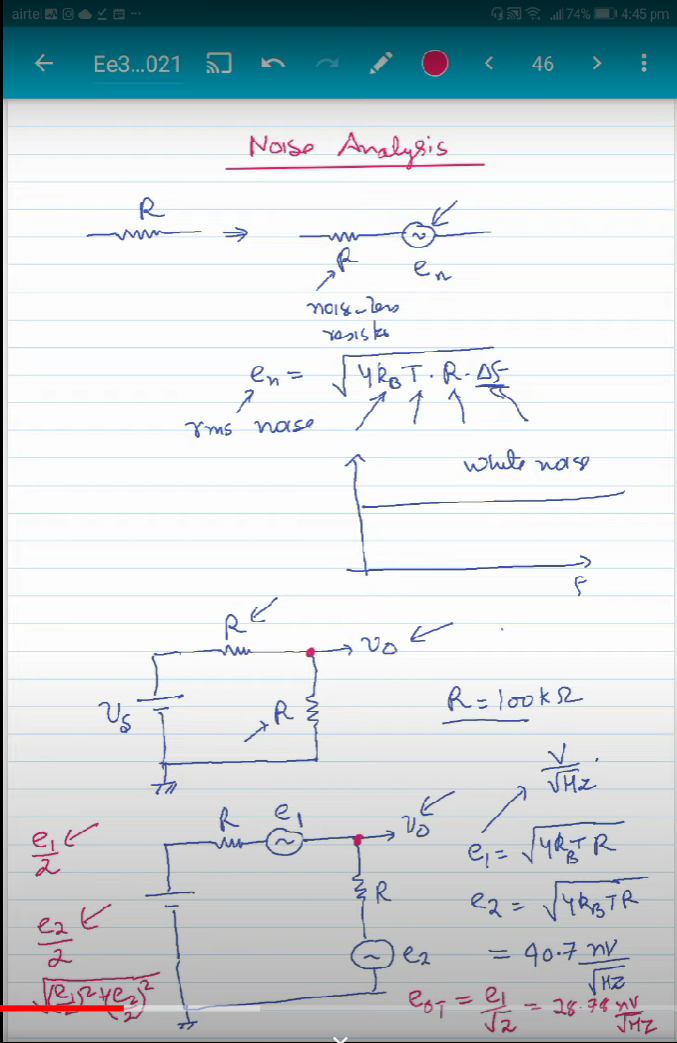 airtel 74% 4:45 pm
Ee3...021 46
Noise Analysis
R
R en
noise-less
resistor
en = √4kBT · R · Δf
rms noise
white noise
F
R
vo
R
Vs
R = 100kΩ
V/√Hz
e1/2
R e1 vo
e1 = √4kBT R
R
e2 = √4kBTR
e2/2
e2
= 40.7 nV/√Hz
√(e1/2)²+(e2/2)²
eoT = e1/√2 = 28.78 nV/√Hz